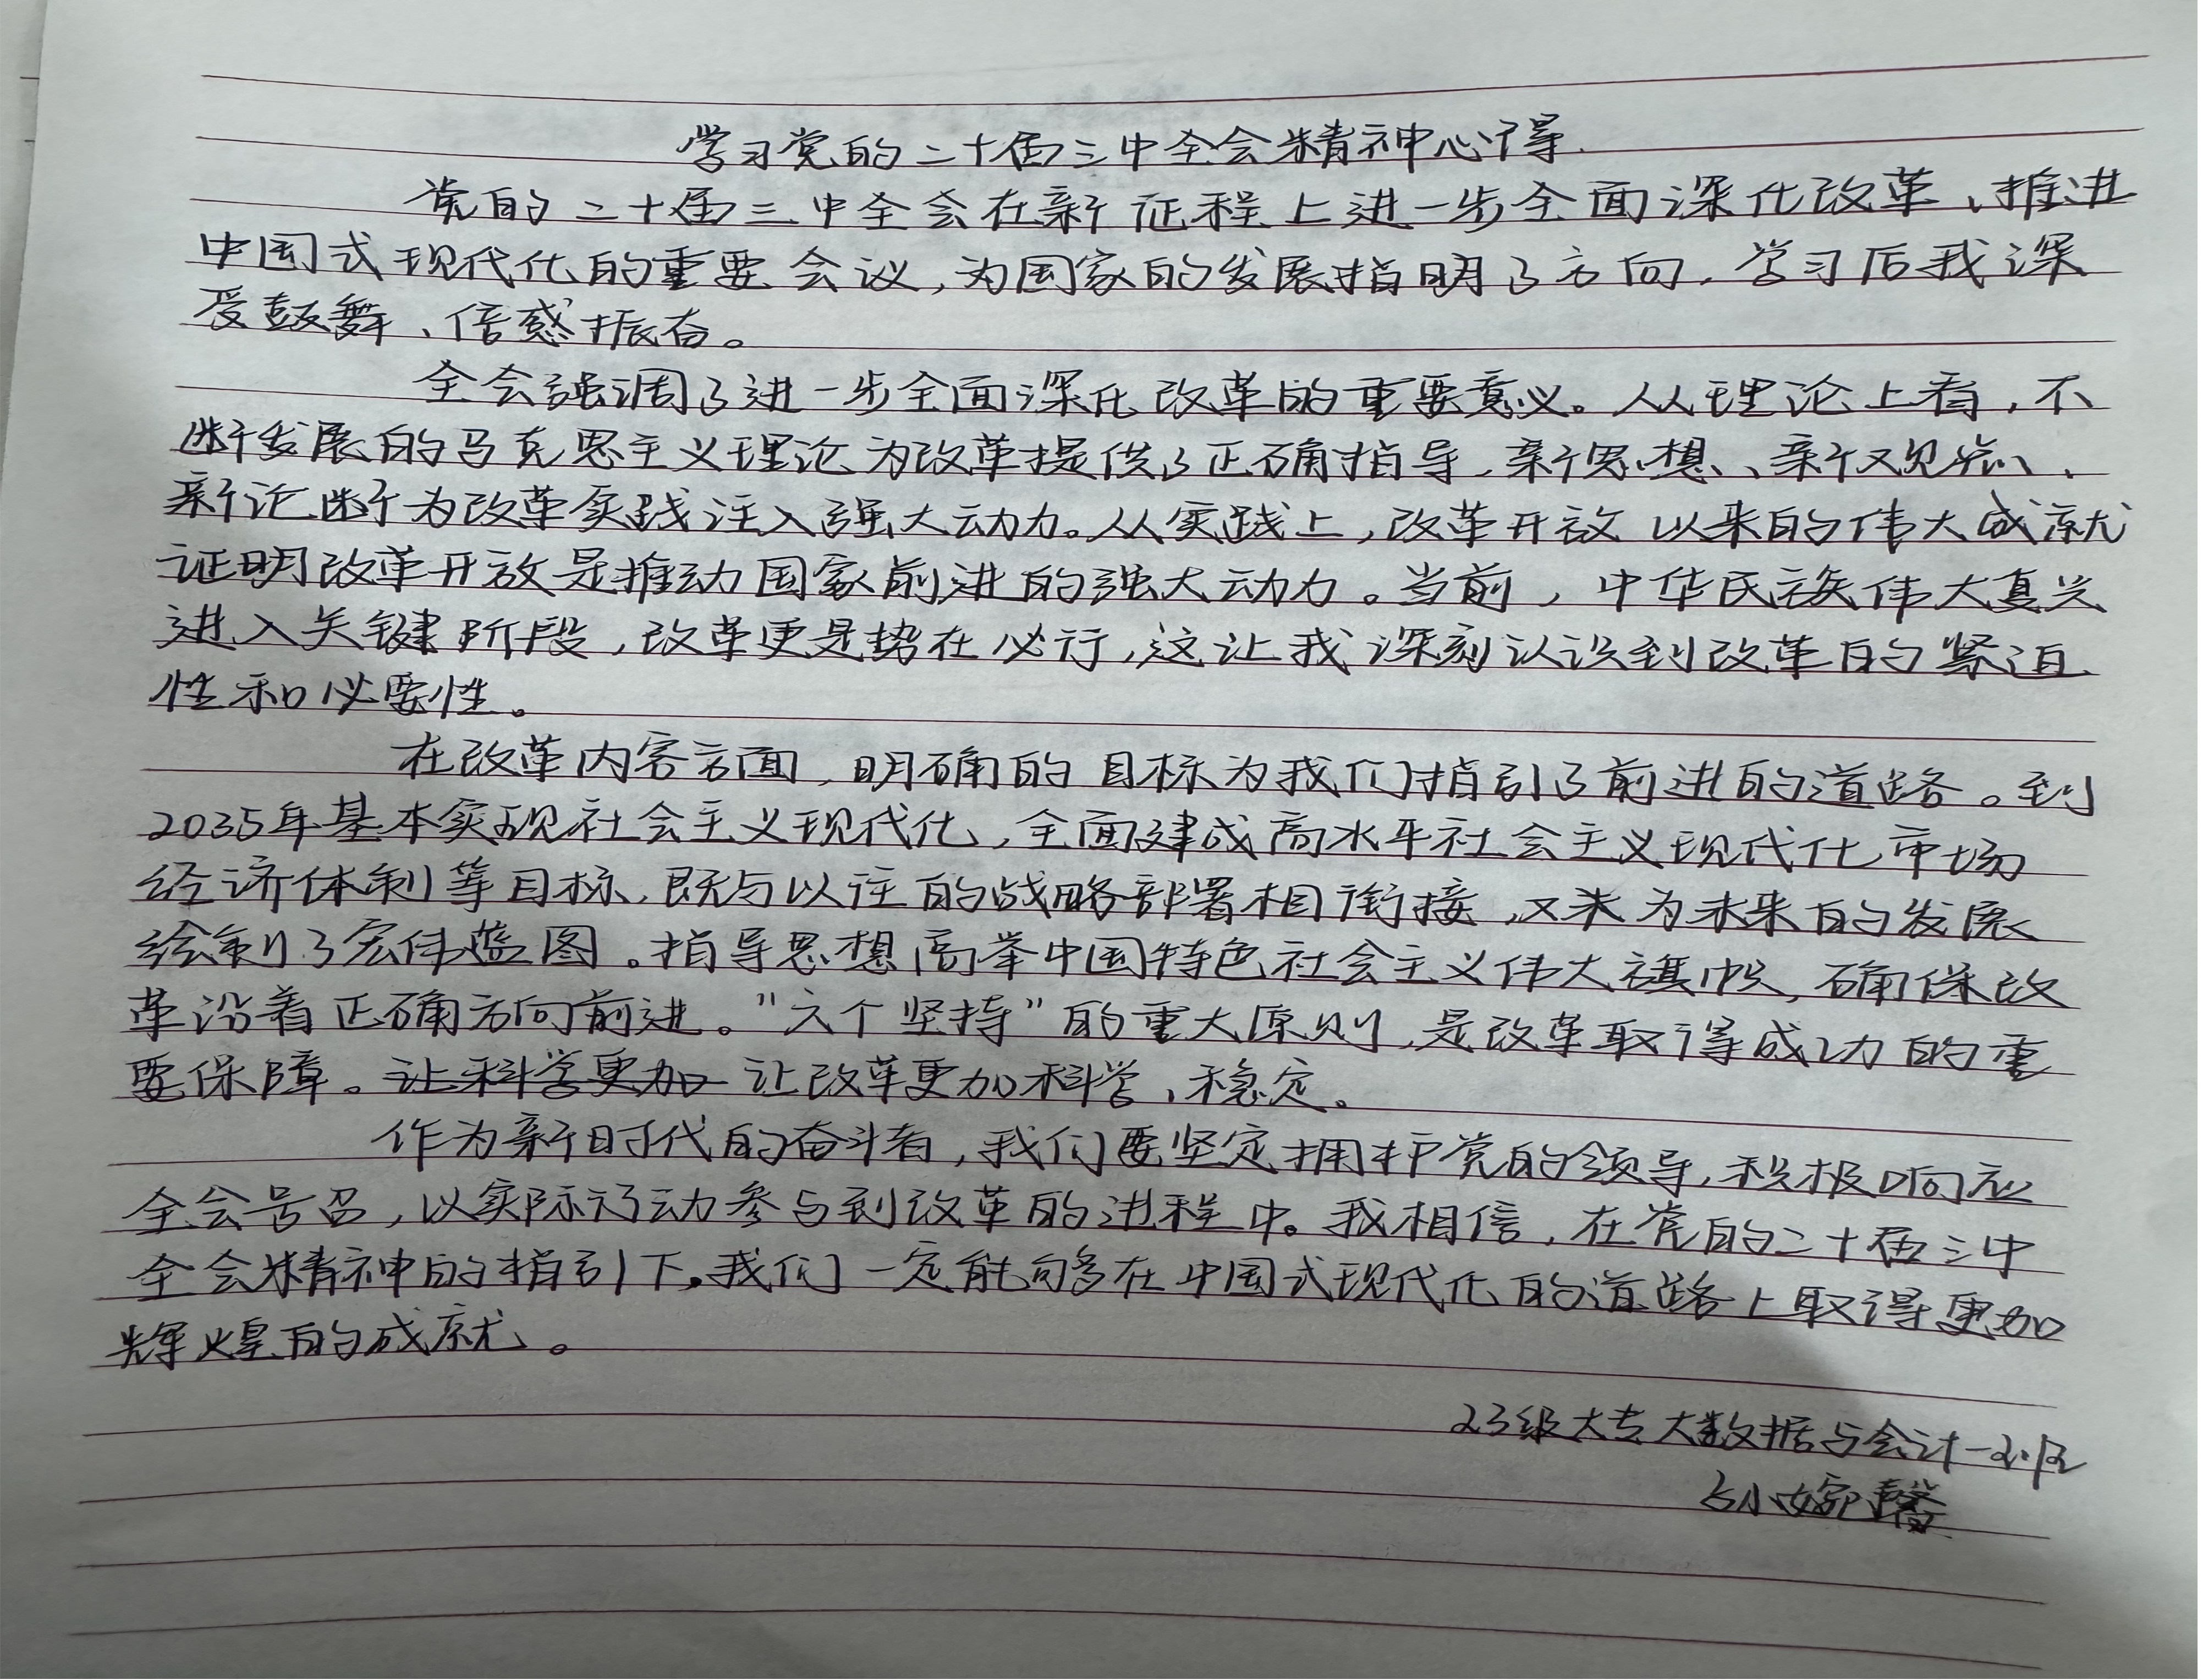 学习党的二十届三中全会精神心得.
党的二十届三中全会在新征程上进一步全面深化改革、推进
中国式现代化的重要会议,为国家的发展指明了方向,学习后我深
受鼓舞、倍感振奋。
全会强调了进一步全面深化改革的重要意义。从理论上看,不
断发展的马克思主义理论为改革提供了正确指导,新思想、新观点、
新论断为改革实践注入强大动力。从实践上,改革开放以来的伟大成就
证明改革开放是推动国家前进的强大动力。当前,中华民族伟大复兴
进入关键阶段,改革更是势在必行,这让我深刻认识到改革的紧迫
性和必要性。
在改革内容方面,明确的目标为我们指引了前进的道路。到
2035年基本实现社会主义现代化,全面建成高水平社会主义现代化市场
经济体制等目标,既与以往的战略部署相衔接,又来为未来的发展
绘制了宏伟蓝图。指导思想高举中国特色社会主义伟大旗帜,确保改
革沿着正确方向前进。"六个坚持"的重大原则,是改革取得成功的重
要保障。让科学更加让改革更加科学、稳定。
作为新时代的奋斗者,我们要坚定拥护党的领导,积极响应
全会号召,以实际行动参与到改革的进程中。我相信,在党的二十届三中
全会精神的指引下,我们一定能够在中国式现代化的道路上取得更加
辉煌的成就。
23级大专大数据与会计一班
孙婉馨